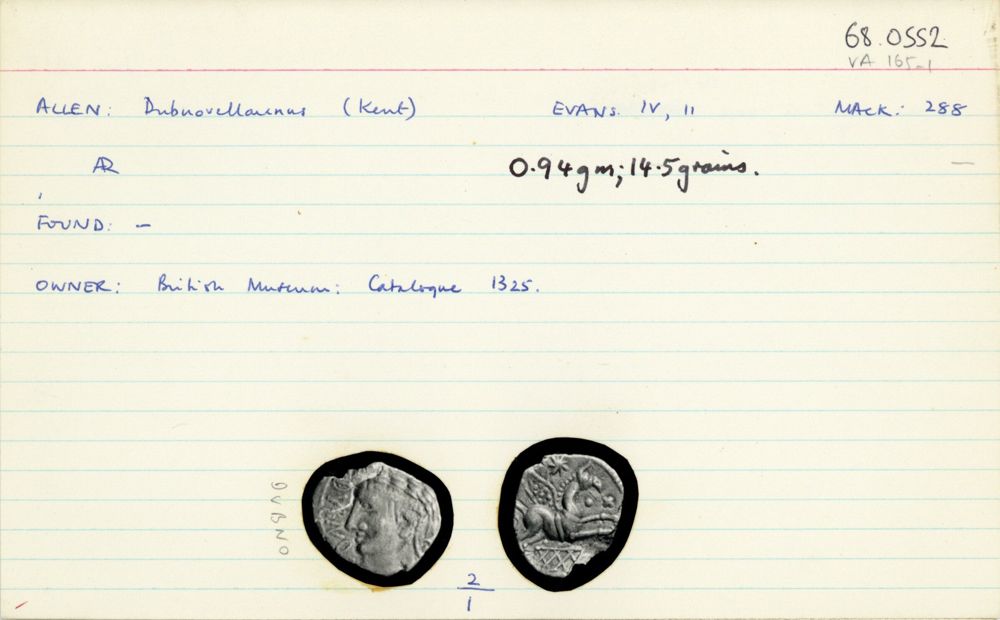 68.0552
VA 165-1
ALLEN: Dubnovellaunus (Kent) EVANS. IV, 11 MACK: 288
AR 0.94gm; 14.5grains. —
FOUND: —
OWNER: British Museum: Catalogue 1325.
DVBNO
2
1